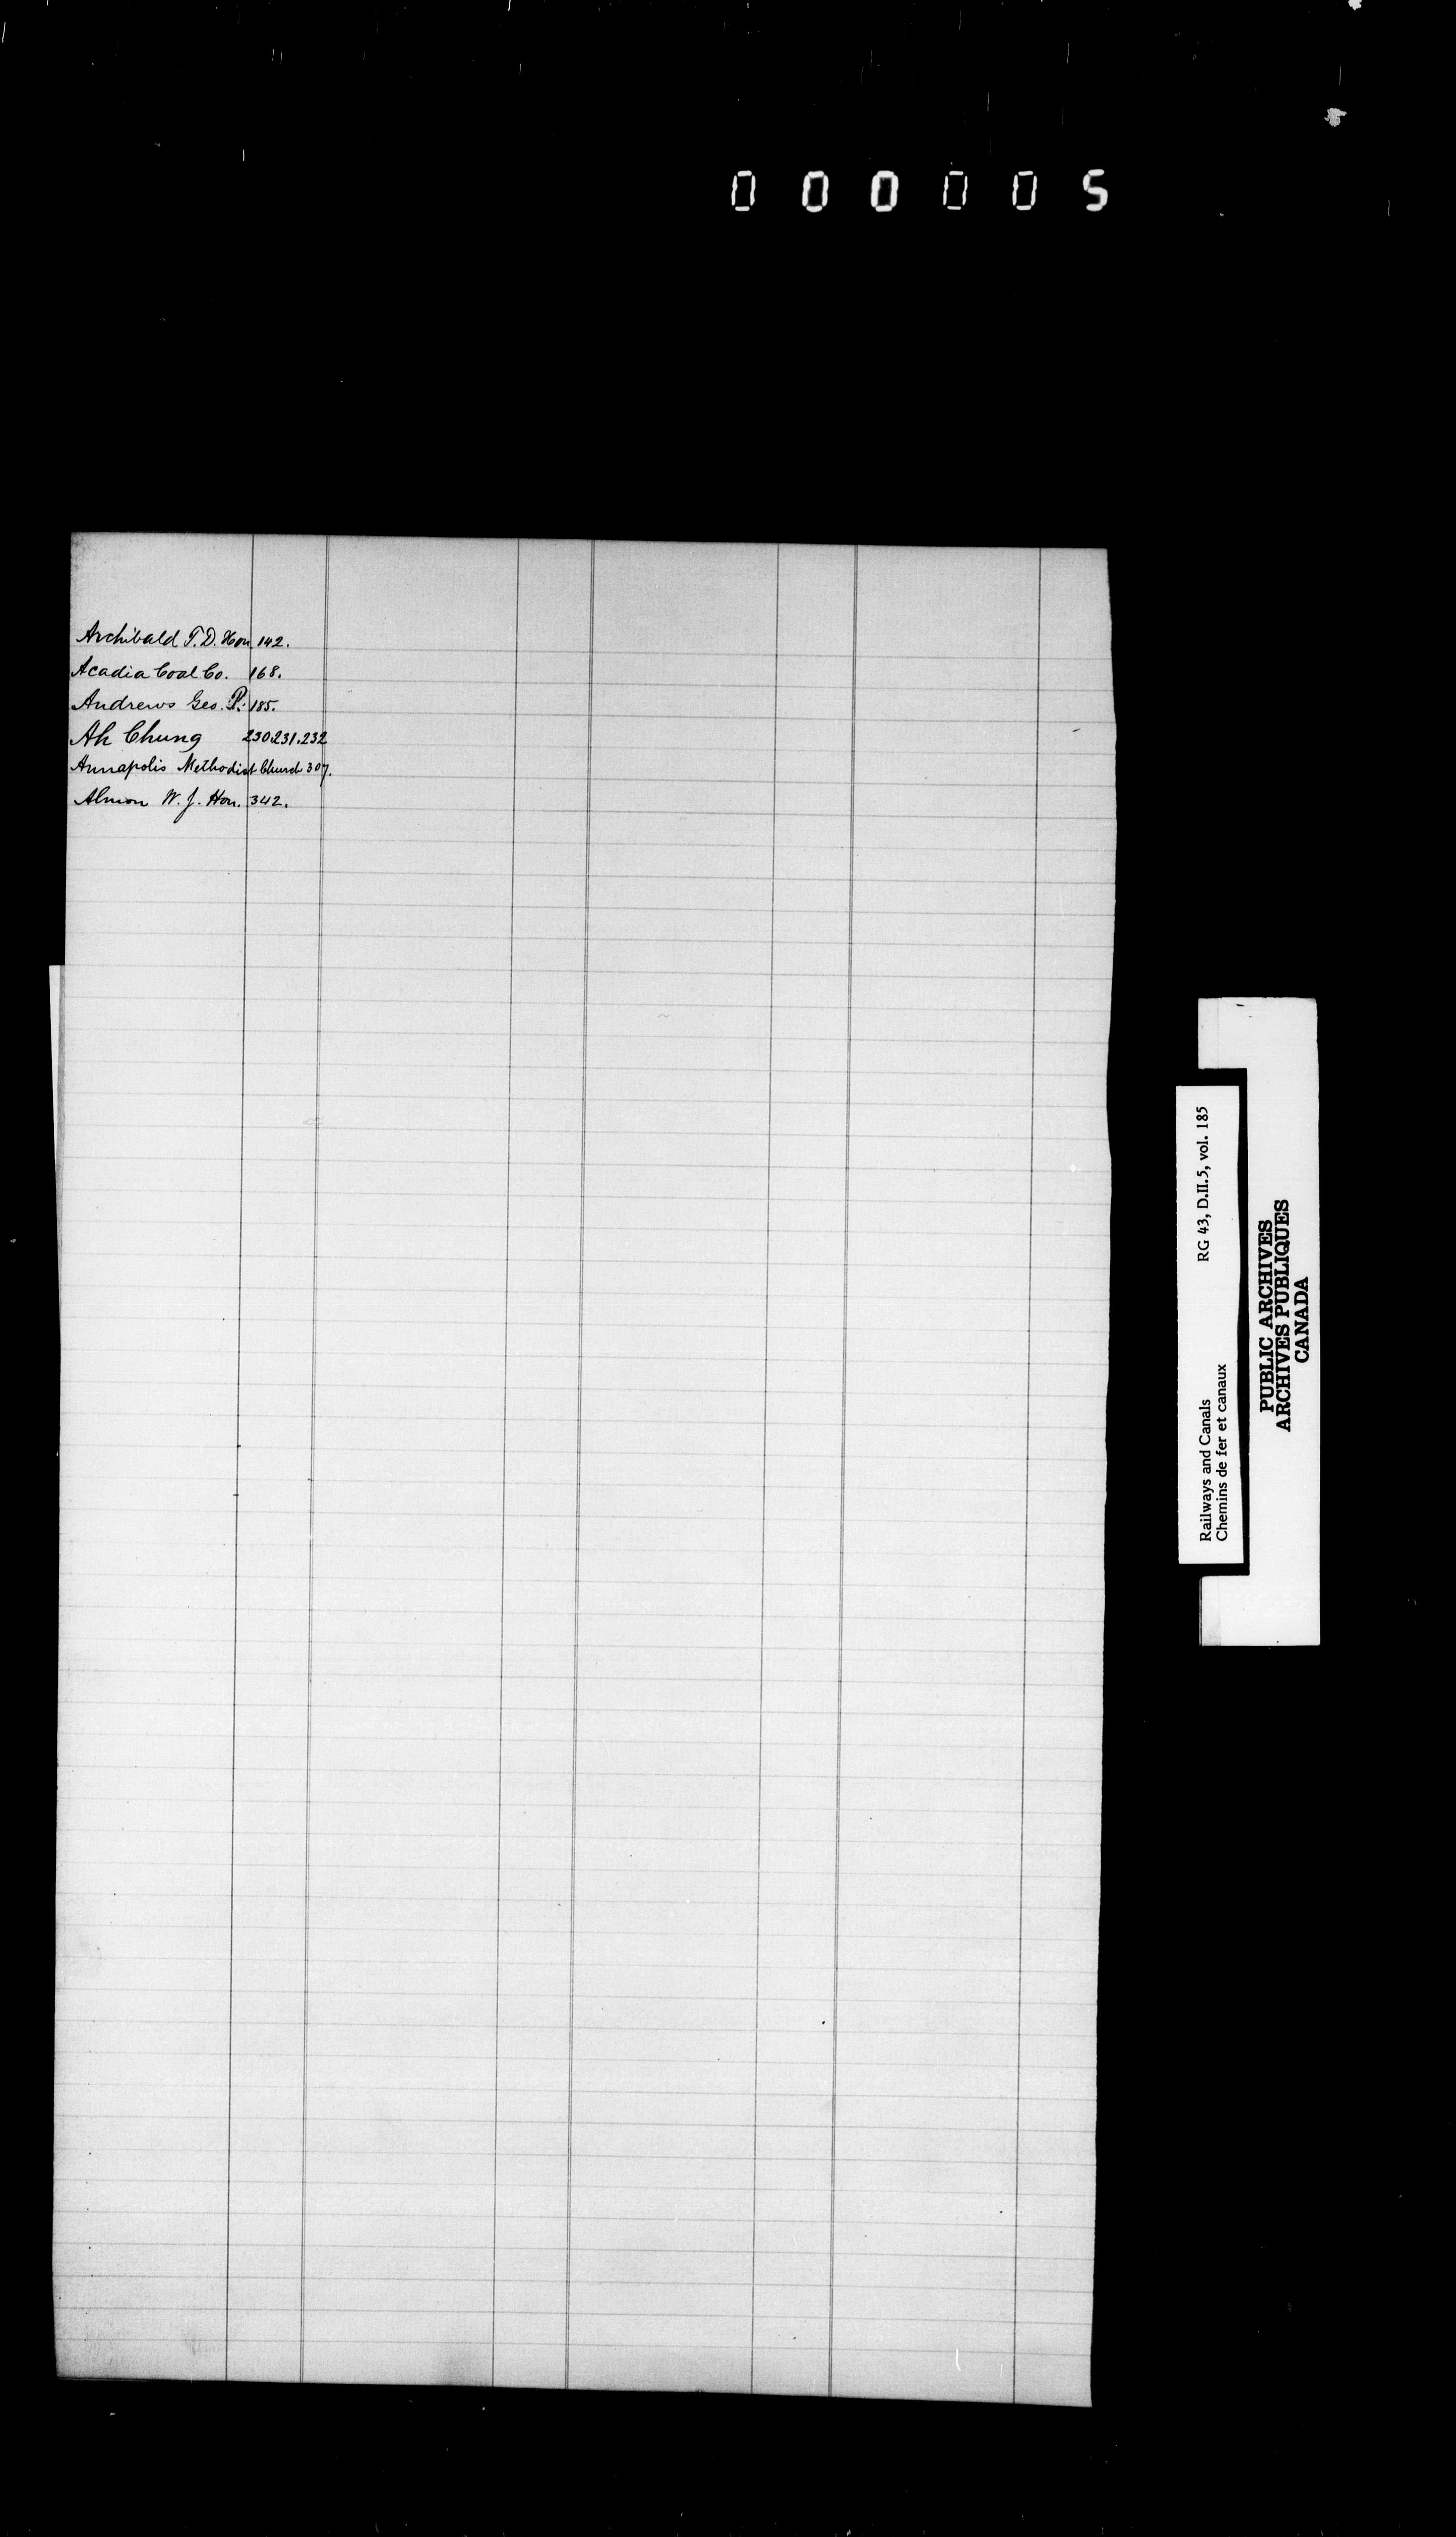 000005
Archibald T.D. Hon 142.
Acadia Coal Co. 168.
Andrews Geo. P. 185.
Ah Chung 230.231.232
Annapolis Methodist Church 307.
Almon W. J. Hon. 342.
Railways and Canals RG 43, D.II.5, vol. 185
Chemins de fer et canaux
PUBLIC ARCHIVES
ARCHIVES PUBLIQUES
CANADA